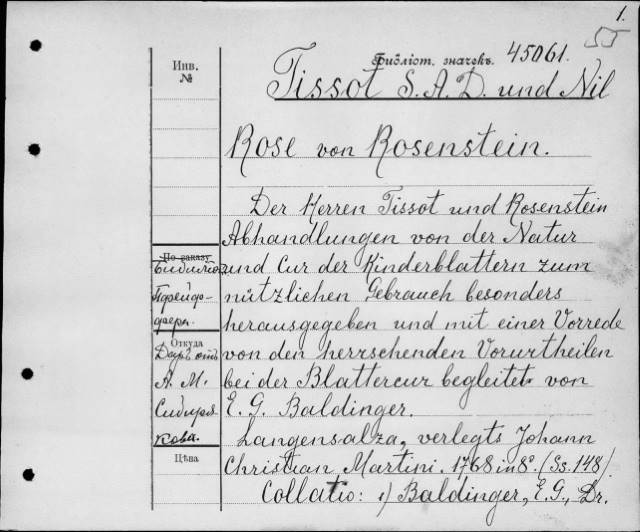 1.
55
Инв.
№
Библіот. значекъ. 45061.
Tissot S. A. D. und Nil
Rose von Rosenstein.
Der Herren Tissot und Rosenstein
Abhandlungen von der Natur
По заказу
und Cur der Kinderblattern zum
nützlichen Gebrauch besonders
herausgegeben und mit einer Vorrede
Откуда
Даръ отъ
von den herrschenden Vorurtheilen
А. М.
bei der Blattercur begleitet von
Сибиря-
кова.
E. G. Baldinger.
Langensalza, verlegts Johann
Цѣна
Christian Martini. 1768 in 8º. (Ss. 148).
Collatio: 1) Baldinger, E. G., Dr.